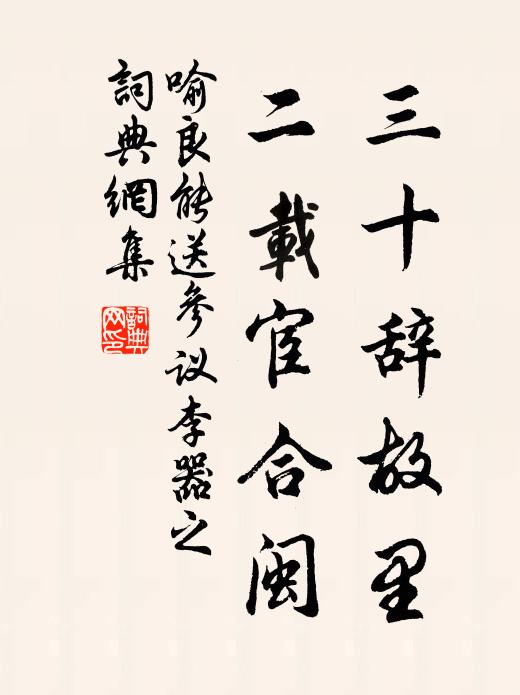 三十辞故里
二載宦合闽
喻良能送參议李器之
詞典網集
詞典
网印